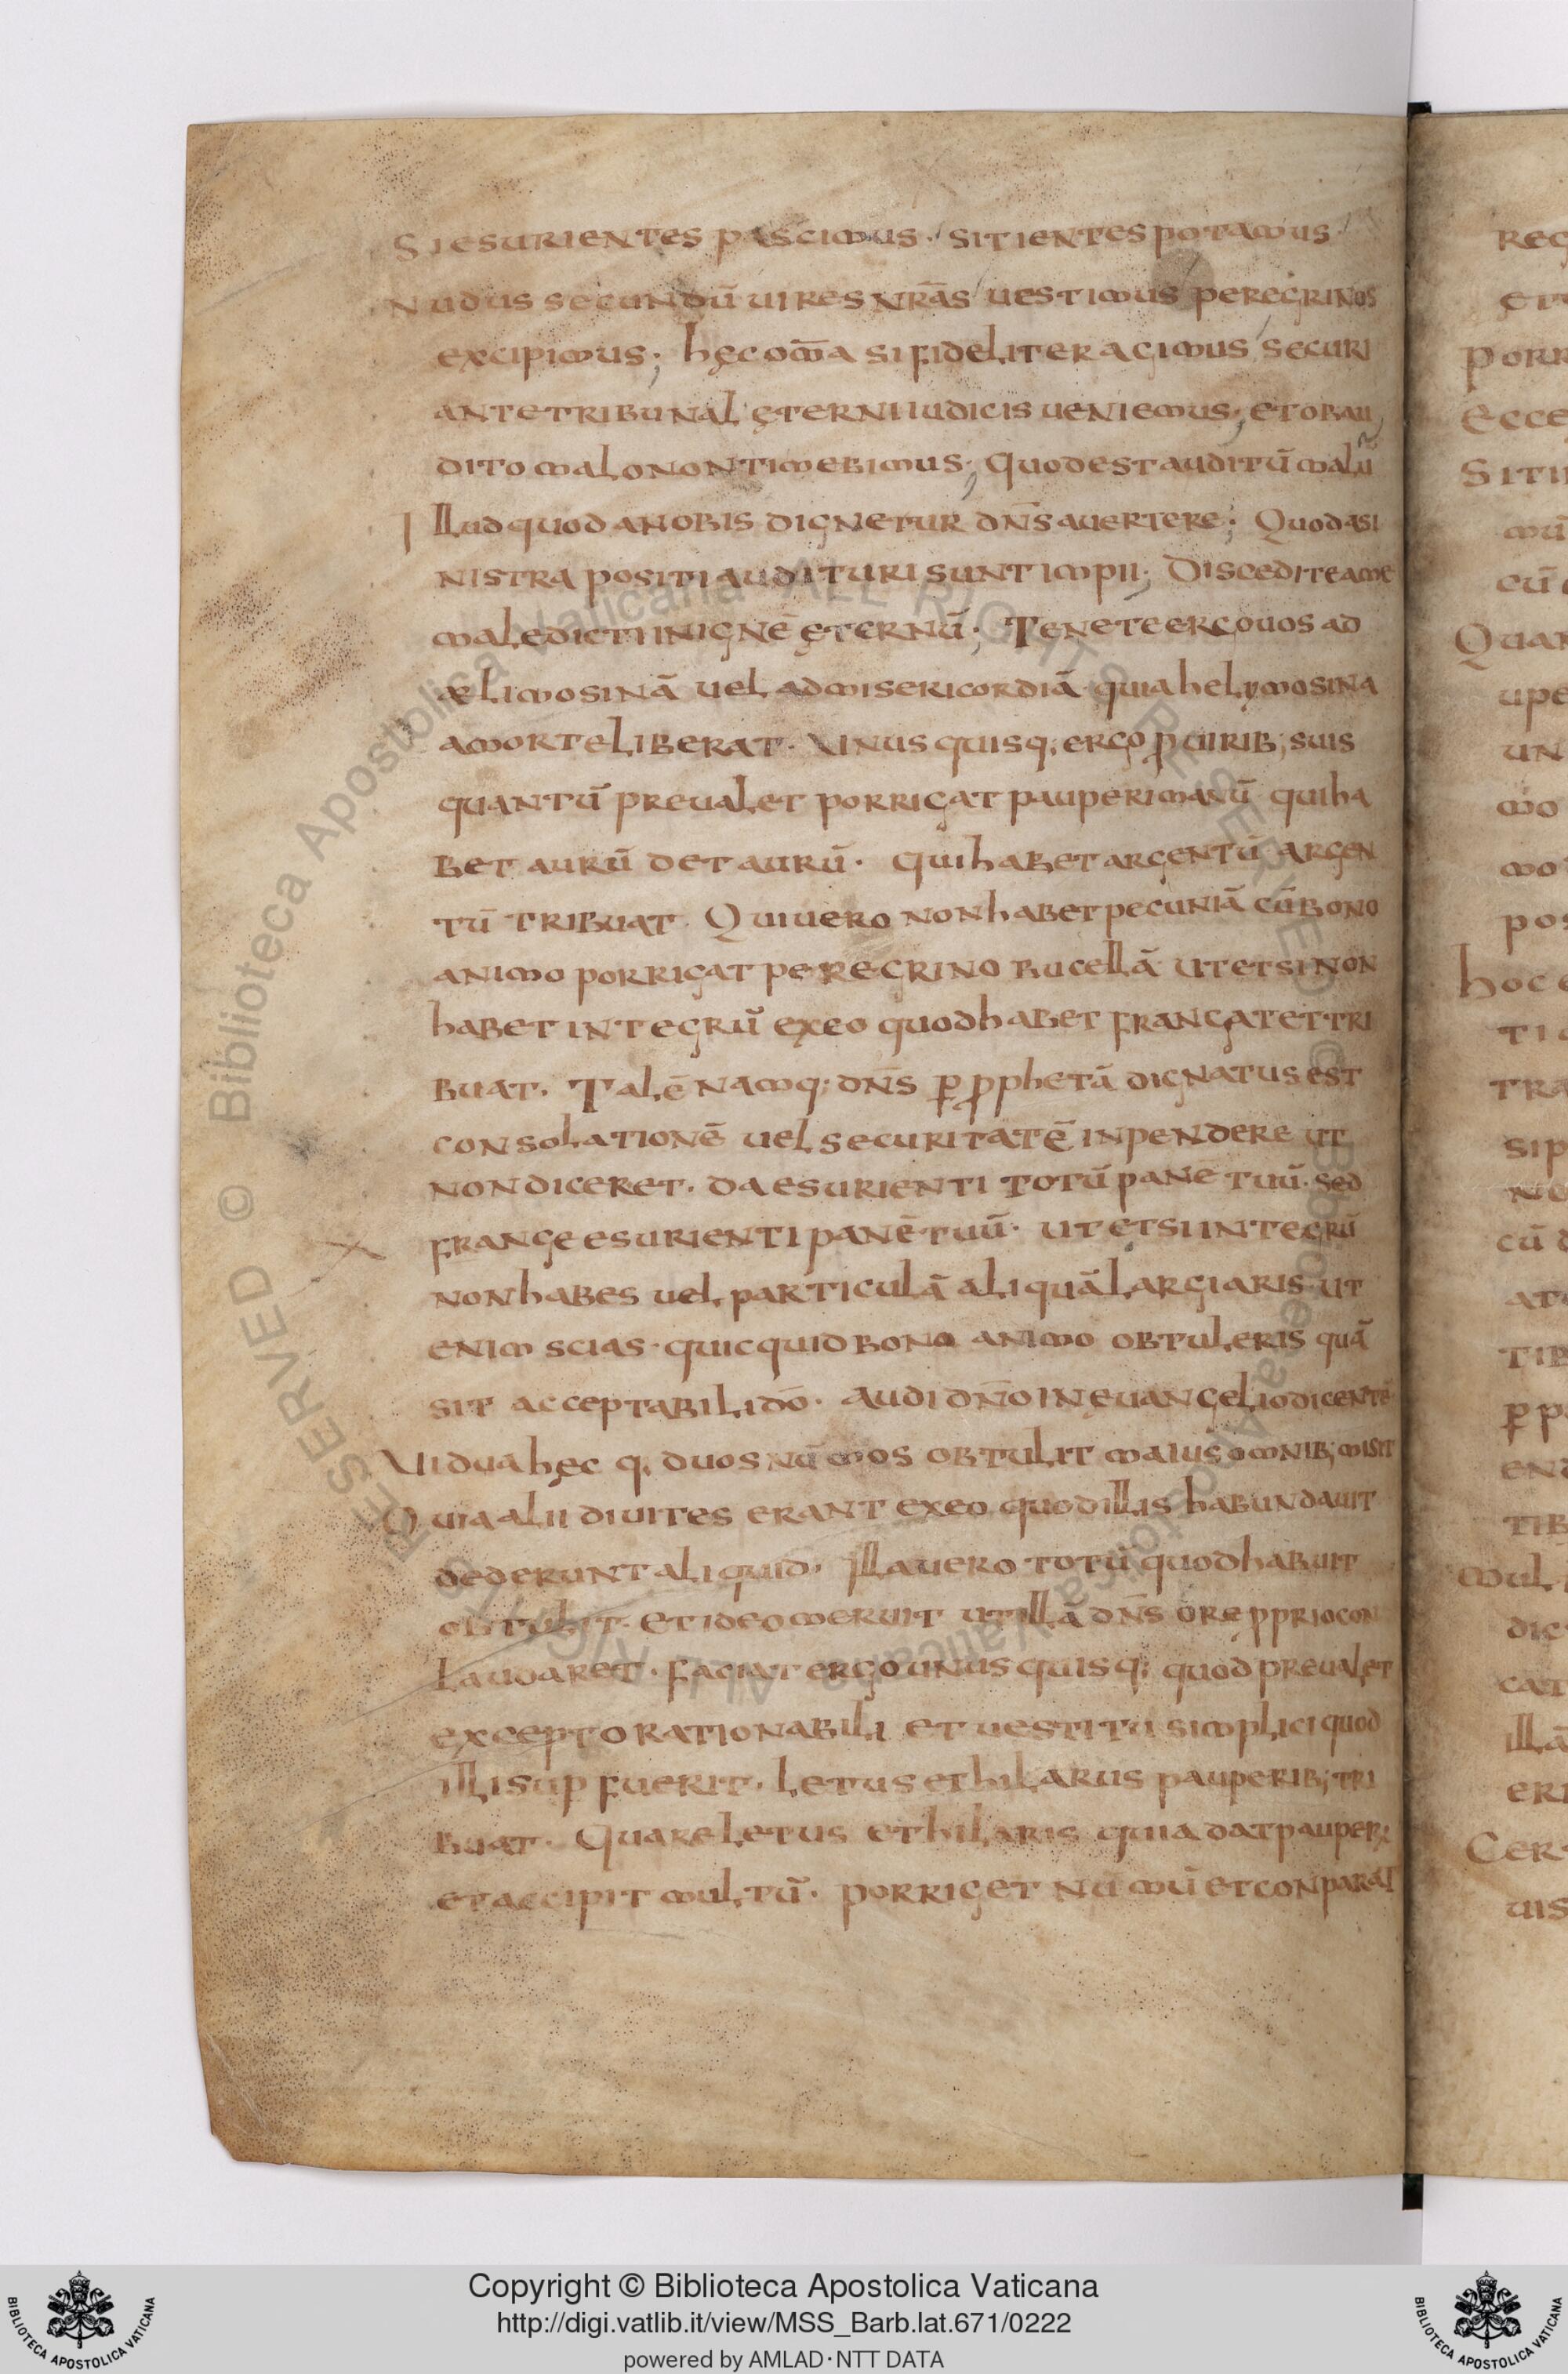 Si esurientes pascimus· sitientes potamus·
Nudus secundū uires nr̄as uestimus peregrinos
excipimus; hęc om̄a si fideliter agimus securi
ante tribunal ęterni iudicis ueniemus; et ob au
dito malo non timebimus; quod est auditū malū
Illud quod a nobis dignetur dn̄s auertere; Quod a si
nistra positi audituri sunt impii; Discedite a me
maledicti in ignē ęternū; Tenete ergo uos ad
ælimosinā uel ad misericordiā· quia helymosina
a morte liberat· Vnus quisq; ergo ꝓ uirib; suis
quantū preualet porrigat pauperi manū qui ha
bet aurū det aurū· qui habet argentū argen
tū tribuat· Qui uero non habet pecuniā cū bono
animo porrigat peregrino bucellā ut etsi non
habet integrū ex eo quod habet frangat et tri
buat· Talē namq; dn̄s ꝑ ꝓphetā dignatus est
consolationē uel securitatē inpendere ut
non diceret· da esurienti totū panē tuū· sed
frange esurienti panē tuū· ut etsi integrū
non habes uel particulā aliquā largiaris· ut
enim scias· quicquid bono animo obtuleris quā
sit acceptabili dō· audi dn̄o in euangelio dicentē
Vidua hęc q; duos nūmos obtulit maius omnib; misit
Quia alii diuites erant ex eo quod illis habundauit
dederunt aliquid· illa uero totū quod habuit
obtulit· et ideo meruit ut illā dn̄s ore ꝓprio con
laudaret· faciat ergo unus quisq; quod preualet
excepto rationabili et uestitu simplici quod
illi suꝑ fuerit· letus et hilarus pauperib; tri
buat· Quare letus et hilaris quia dat pauper;
et accipit multū· porriget nūmū et conparat
Reg
porr
Ecce
Siti
mū
cū
Quan
upe
un
mo
mo
pos
hoc e
ti
tra
sip
cū d
at
tib
ꝑ p
end
tib
mul
dic
cat
illā
eri
Cer
uis
Copyright © Biblioteca Apostolica Vaticana
http://digi.vatlib.it/view/MSS_Barb.lat.671/0222
powered by AMLAD·NTT DATA
BIBLIOTECA APOSTOLICA VATICANA
BIBLIOTECA APOSTOLICA VATICANA